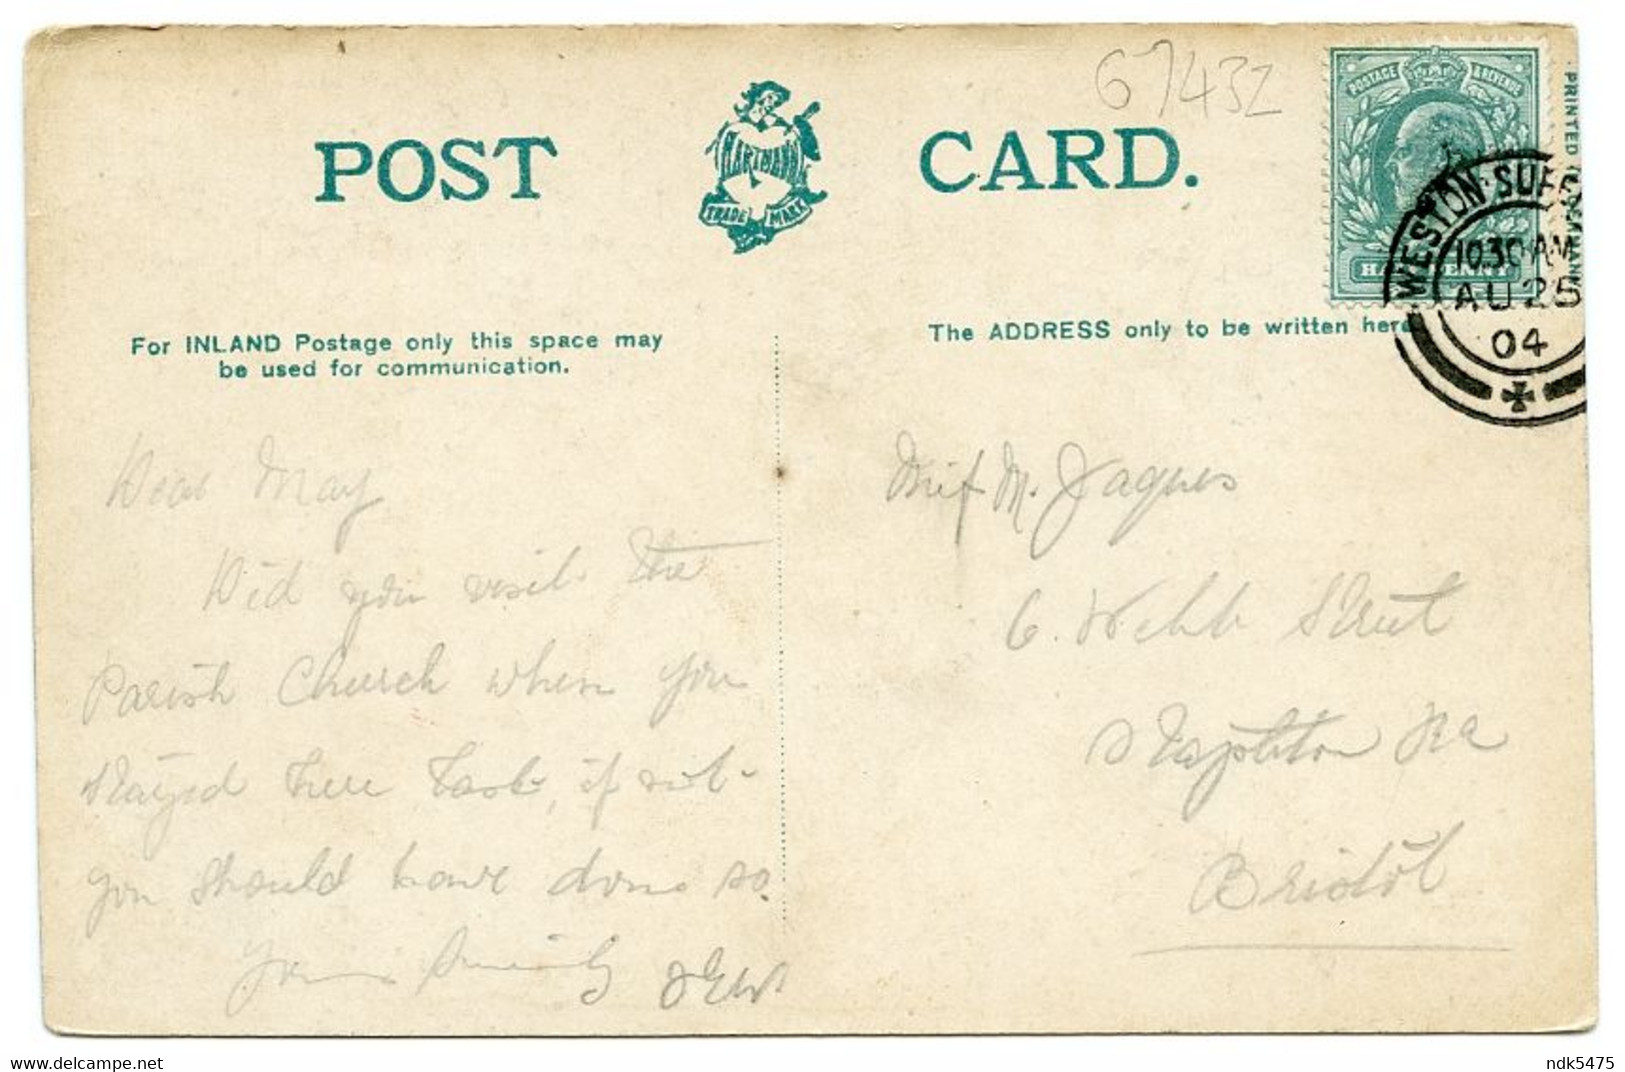 67432
POST CARD.
HARTMANN
TRADE MARK
POSTAGE & REVENUE
HALFPENNY
PRINTED
WESTON-SUP
10.30 AM
AU 25
04
For INLAND Postage only this space may
be used for communication.
The ADDRESS only to be written here
Dear May
Did you visit the
Parish Church when you
stayed here last, if not
you should have done so.
Yours Sincerely
Miss M. Jaques
6. Webb Street
Stapleton Rd
Bristol
ndk5475